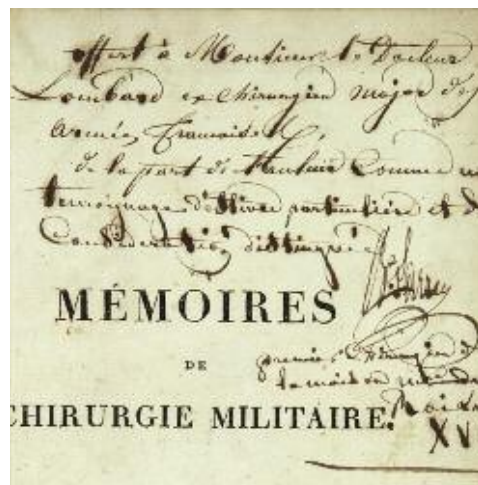 offert à Monsieur le Docteur
Lombard ex Chirurgien major des
armées françaises,
de la part de l'auteur Comme un
témoignage d'estime particulière et de
Considération distinguée
MÉMOIRES
DE
premier Chirurgien de
la maison
CHIRURGIE MILITAIRE.
XV